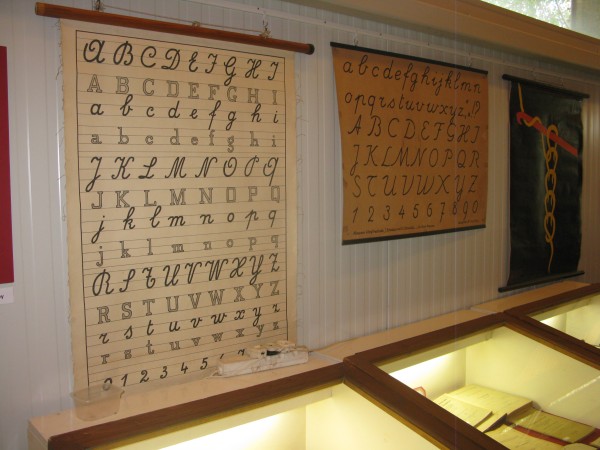 A B C D E F G H I
A B C D E F G H I
a b c d e f g h i
a b c d e f g h i
J K L M N O P Q
J K L M N O P Q
j k l m n o p q
j k l m n o p q
R S T U V W X Y Z
R S T U V W X Y Z
r s t u v w x y z
r s t u v w x y z
0 1 2 3 4 5 6
a b c d e f g h i j k l m n
o p q r s t u v w x y z , ! ?
A B C D E F G H I
J K L M N O P Q R
S T U V W X Y Z
1 2 3 4 5 6 7 8 9 0